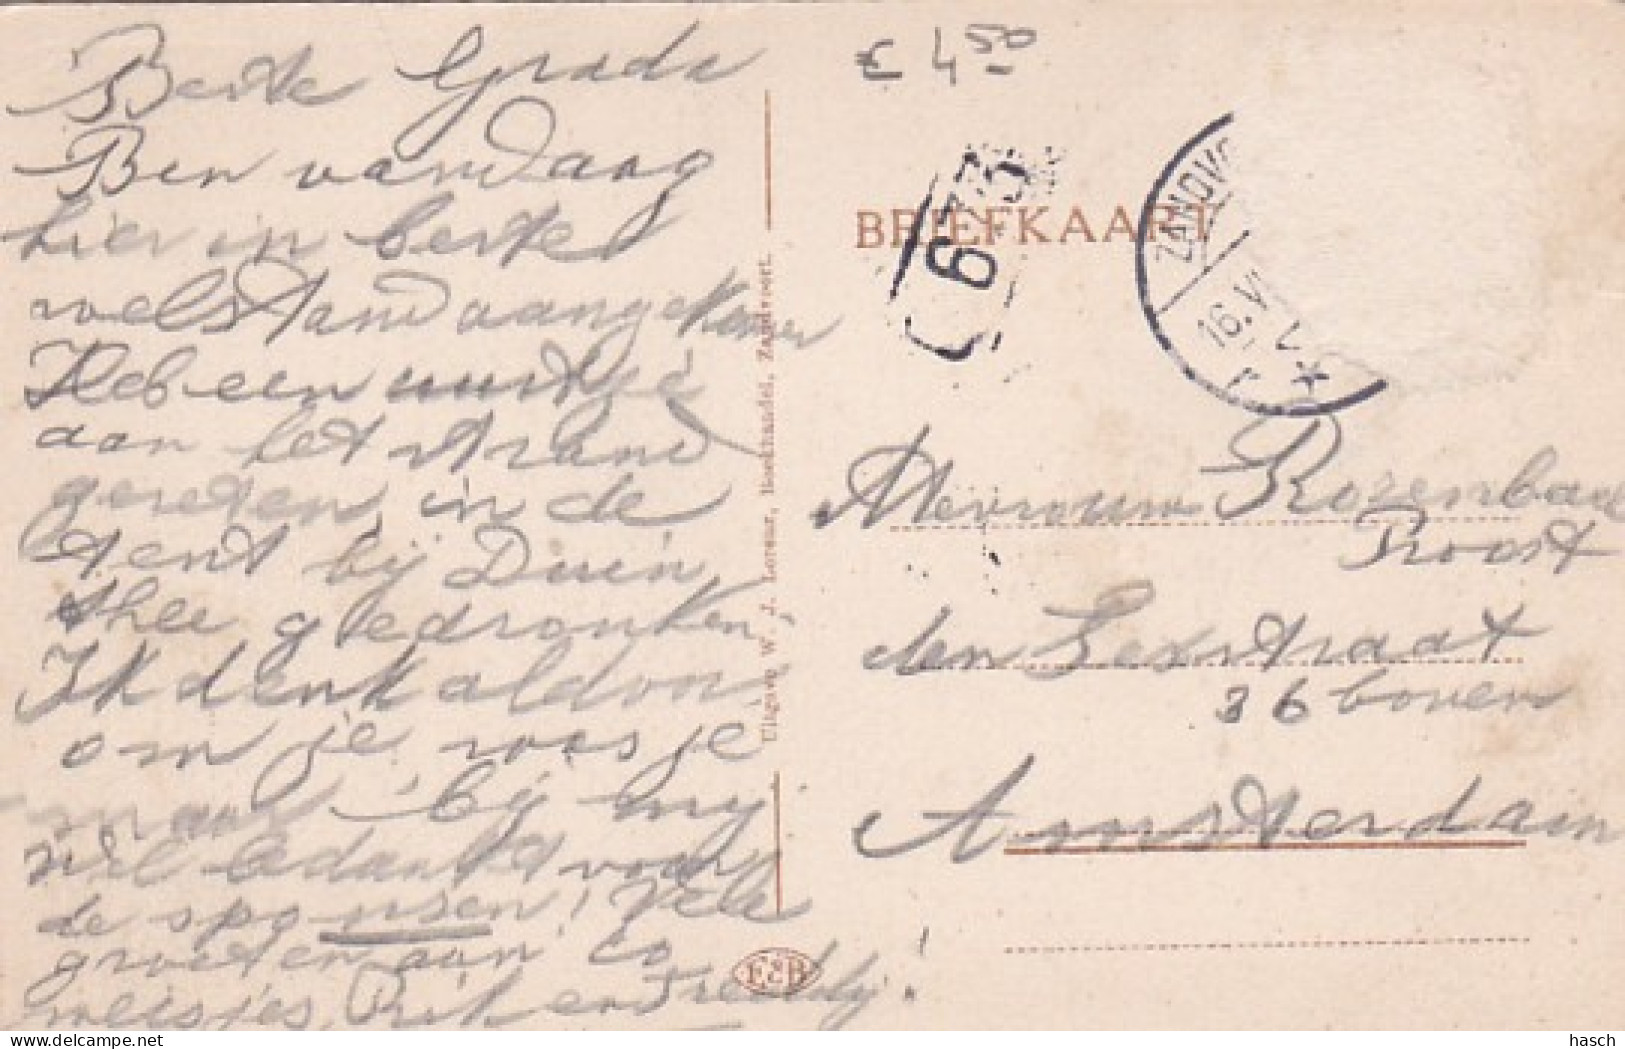 Beste Grada
Ben vandaag
hier in beste
welstand aangekomen
Heb een uurtje
aan het strand
gereden, in de
tent bij Duin
thee gedronken,
Ik denk aldoor
om je roosje
maar bij my
Wel bedankt voor
de sponsen! Vele
groeten aan Co
meisjes, Rik en Freddy!
Uitgave W. J. Lorsear, Boekhandel, Zandvoort.
E&B
€ 4 50
673
BRIEFKAART
ZANDVO
16.VI
Mevrouw Rozenbad
Proost
den Lexstraat
36 boven
Amsterdam
hasch